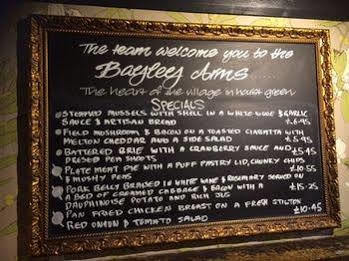 The team welcome you to the
Bayley Arms
The heart of the village in hurst green
SPECIALS
STEAMED MUSSELS WITH SHELL IN A WHITE WINE & GARLIC
SAUCE & ARTISAN BREAD £6.95
FIELD MUSHROOM & BACON ON A TOASTED CIABATTA WITH
MELTON CHEDDAR AND A SIDE SALAD £5.95
BATTERED BRIE WITH A CRANBERRY SAUCE AND £5.45
DRESED PEA SHOOTS
PLATE MEAT PIE WITH A PUFF PASTRY LID, CHUNKY CHIPS
& MUSHY PEAS £10.55
PORK BELLY BRAISED IN WHITE WINE & ROSEMARY SERVED ON
A BED OF CREAMED CABBAGE & BACON WITH A £15.25
DAUPHINOISE POTATO AND RICH JUS
PAN FRIED CHICKEN BREAST ON A FRESH STILTON £10.45
RED ONION & TOMATO SALAD